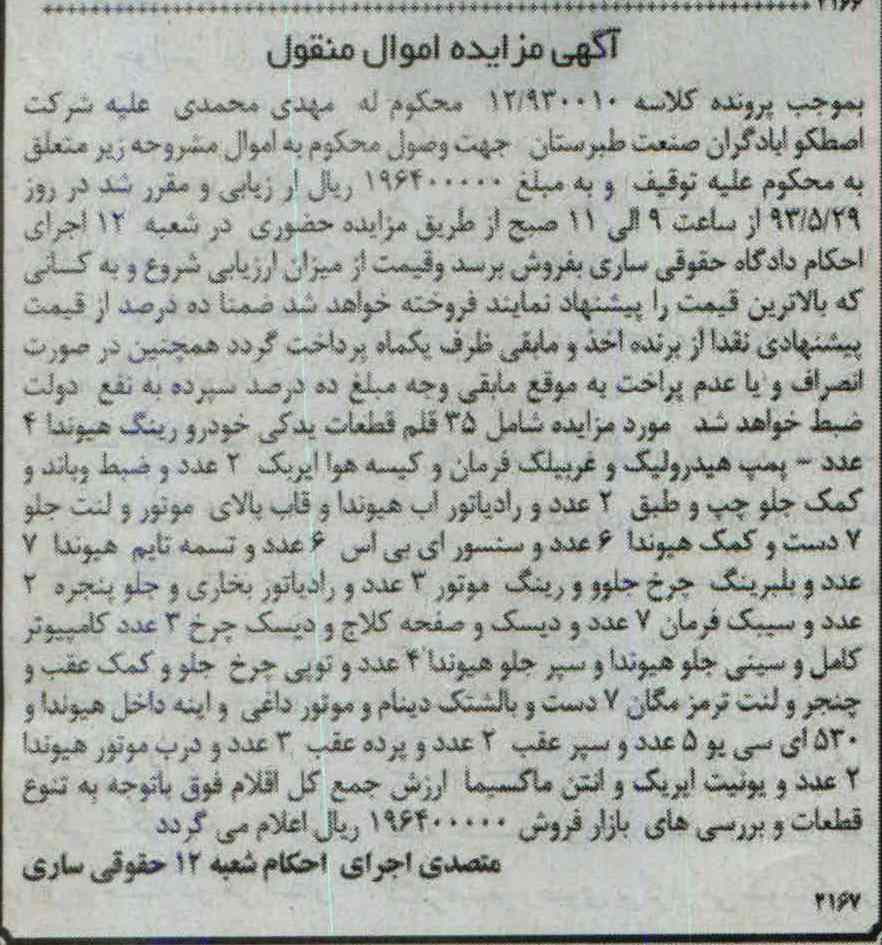 ۲۱۶۶
آگهی مزایده اموال منقول
بموجب پرونده کلاسه ۱۲/۹۳۰۰۱۰ محکوم له مهدی محمدی علیه شرکت
اصطکو ابادگران صنعت طبرستان جهت وصول محکوم به اموال مشروحه زیر متعلق
به محکوم علیه توقیف و به مبلغ ۱۹۶۴۰۰۰۰۰ ریال ار زیابی و مقرر شد در روز
۹۳/۵/۲۹ از ساعت ۹ الی ۱۱ صبح از طریق مزایده حضوری در شعبه ۱۲ اجرای
احکام دادگاه حقوقی ساری بفروش برسد وقیمت از میزان ارزیابی شروع و به کسانی
که بالاترین قیمت را پیشنهاد نمایند فروخته خواهد شد ضمنا ده درصد از قیمت
پیشنهادی نقدا از برنده اخذ و مابقی ظرف یکماه پرداخت گردد همچنین در صورت
انصراف و یا عدم پراخت به موقع مابقی وجه مبلغ ده درصد سپرده به نفع دولت
ضبط خواهد شد مورد مزایده شامل ۳۵ قلم قطعات یدکی خودرو رینگ هیوندا ۴
عدد - پمپ هیدرولیک و غربیلک فرمان و کیسه هوا ایربک ۲ عدد و ضبط وباند و
کمک جلو چپ و طبق ۲ عدد و رادیاتور اب هیوندا و قاب بالای موتور و لنت جلو
۷ دست و کمک هیوندا ۶ عدد و سنسور ای بی اس ۶ عدد و تسمه تایم هیوندا ۷
عدد و بلبرینگ چرخ جلوو و رینگ موتور ۳ عدد و رادیاتور بخاری و جلو پنجره ۲
عدد و سیبک فرمان ۷ عدد و دیسک و صفحه کلاج و دیسک چرخ ۳ عدد کامپیوتر
کامل و سینی جلو هیوندا و سپر جلو هیوندا ۴ عدد و توپی چرخ جلو و کمک عقب و
چنجر و لنت ترمز مگان ۷ دست و بالشتک دینام و موتور داغی و اینه داخل هیوندا و
۵۳۰ ای سی یو ۵ عدد و سپر عقب ۲ عدد و پرده عقب ۳ عدد و درب موتور هیوندا
۲ عدد و یونیت ایربک و انتن ماکسیما ارزش جمع کل اقلام فوق باتوجه به تنوع
قطعات و بررسی های بازار فروش ۱۹۶۴۰۰۰۰۰ ریال اعلام می گردد
متصدی اجرای احکام شعبه ۱۲ حقوقی ساری
۲۱۶۷